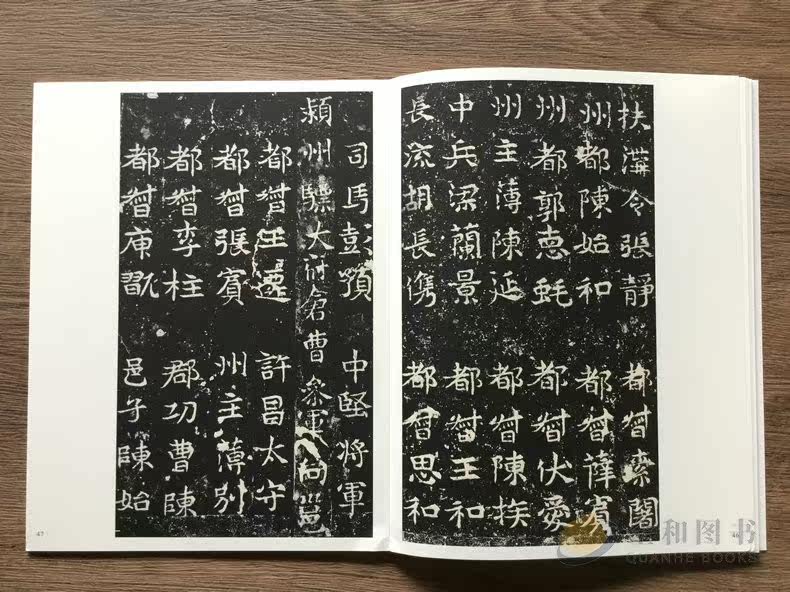 扶溝令張靜 都督索闍
州都陳始和 都督薛賓
州都郭惠蚝 都督伏愛
州主薄陳延 都督陳族
中兵梁蘭景 都督王和
長流胡長儁 都督思和
46
司馬彭預 中堅將軍
潁州驃大府倉曹參軍向邕
都督王遵 許昌太守
都督張賓 州主薄別
都督李柱 郡功曹陳
都督庫 邑子陳始
47
和图书
QUANHE BOOKS